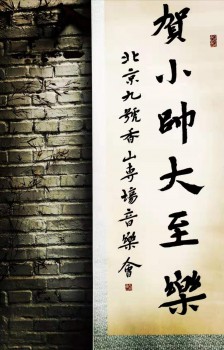 賀小帥大至樂
北京九號香山專場音樂會